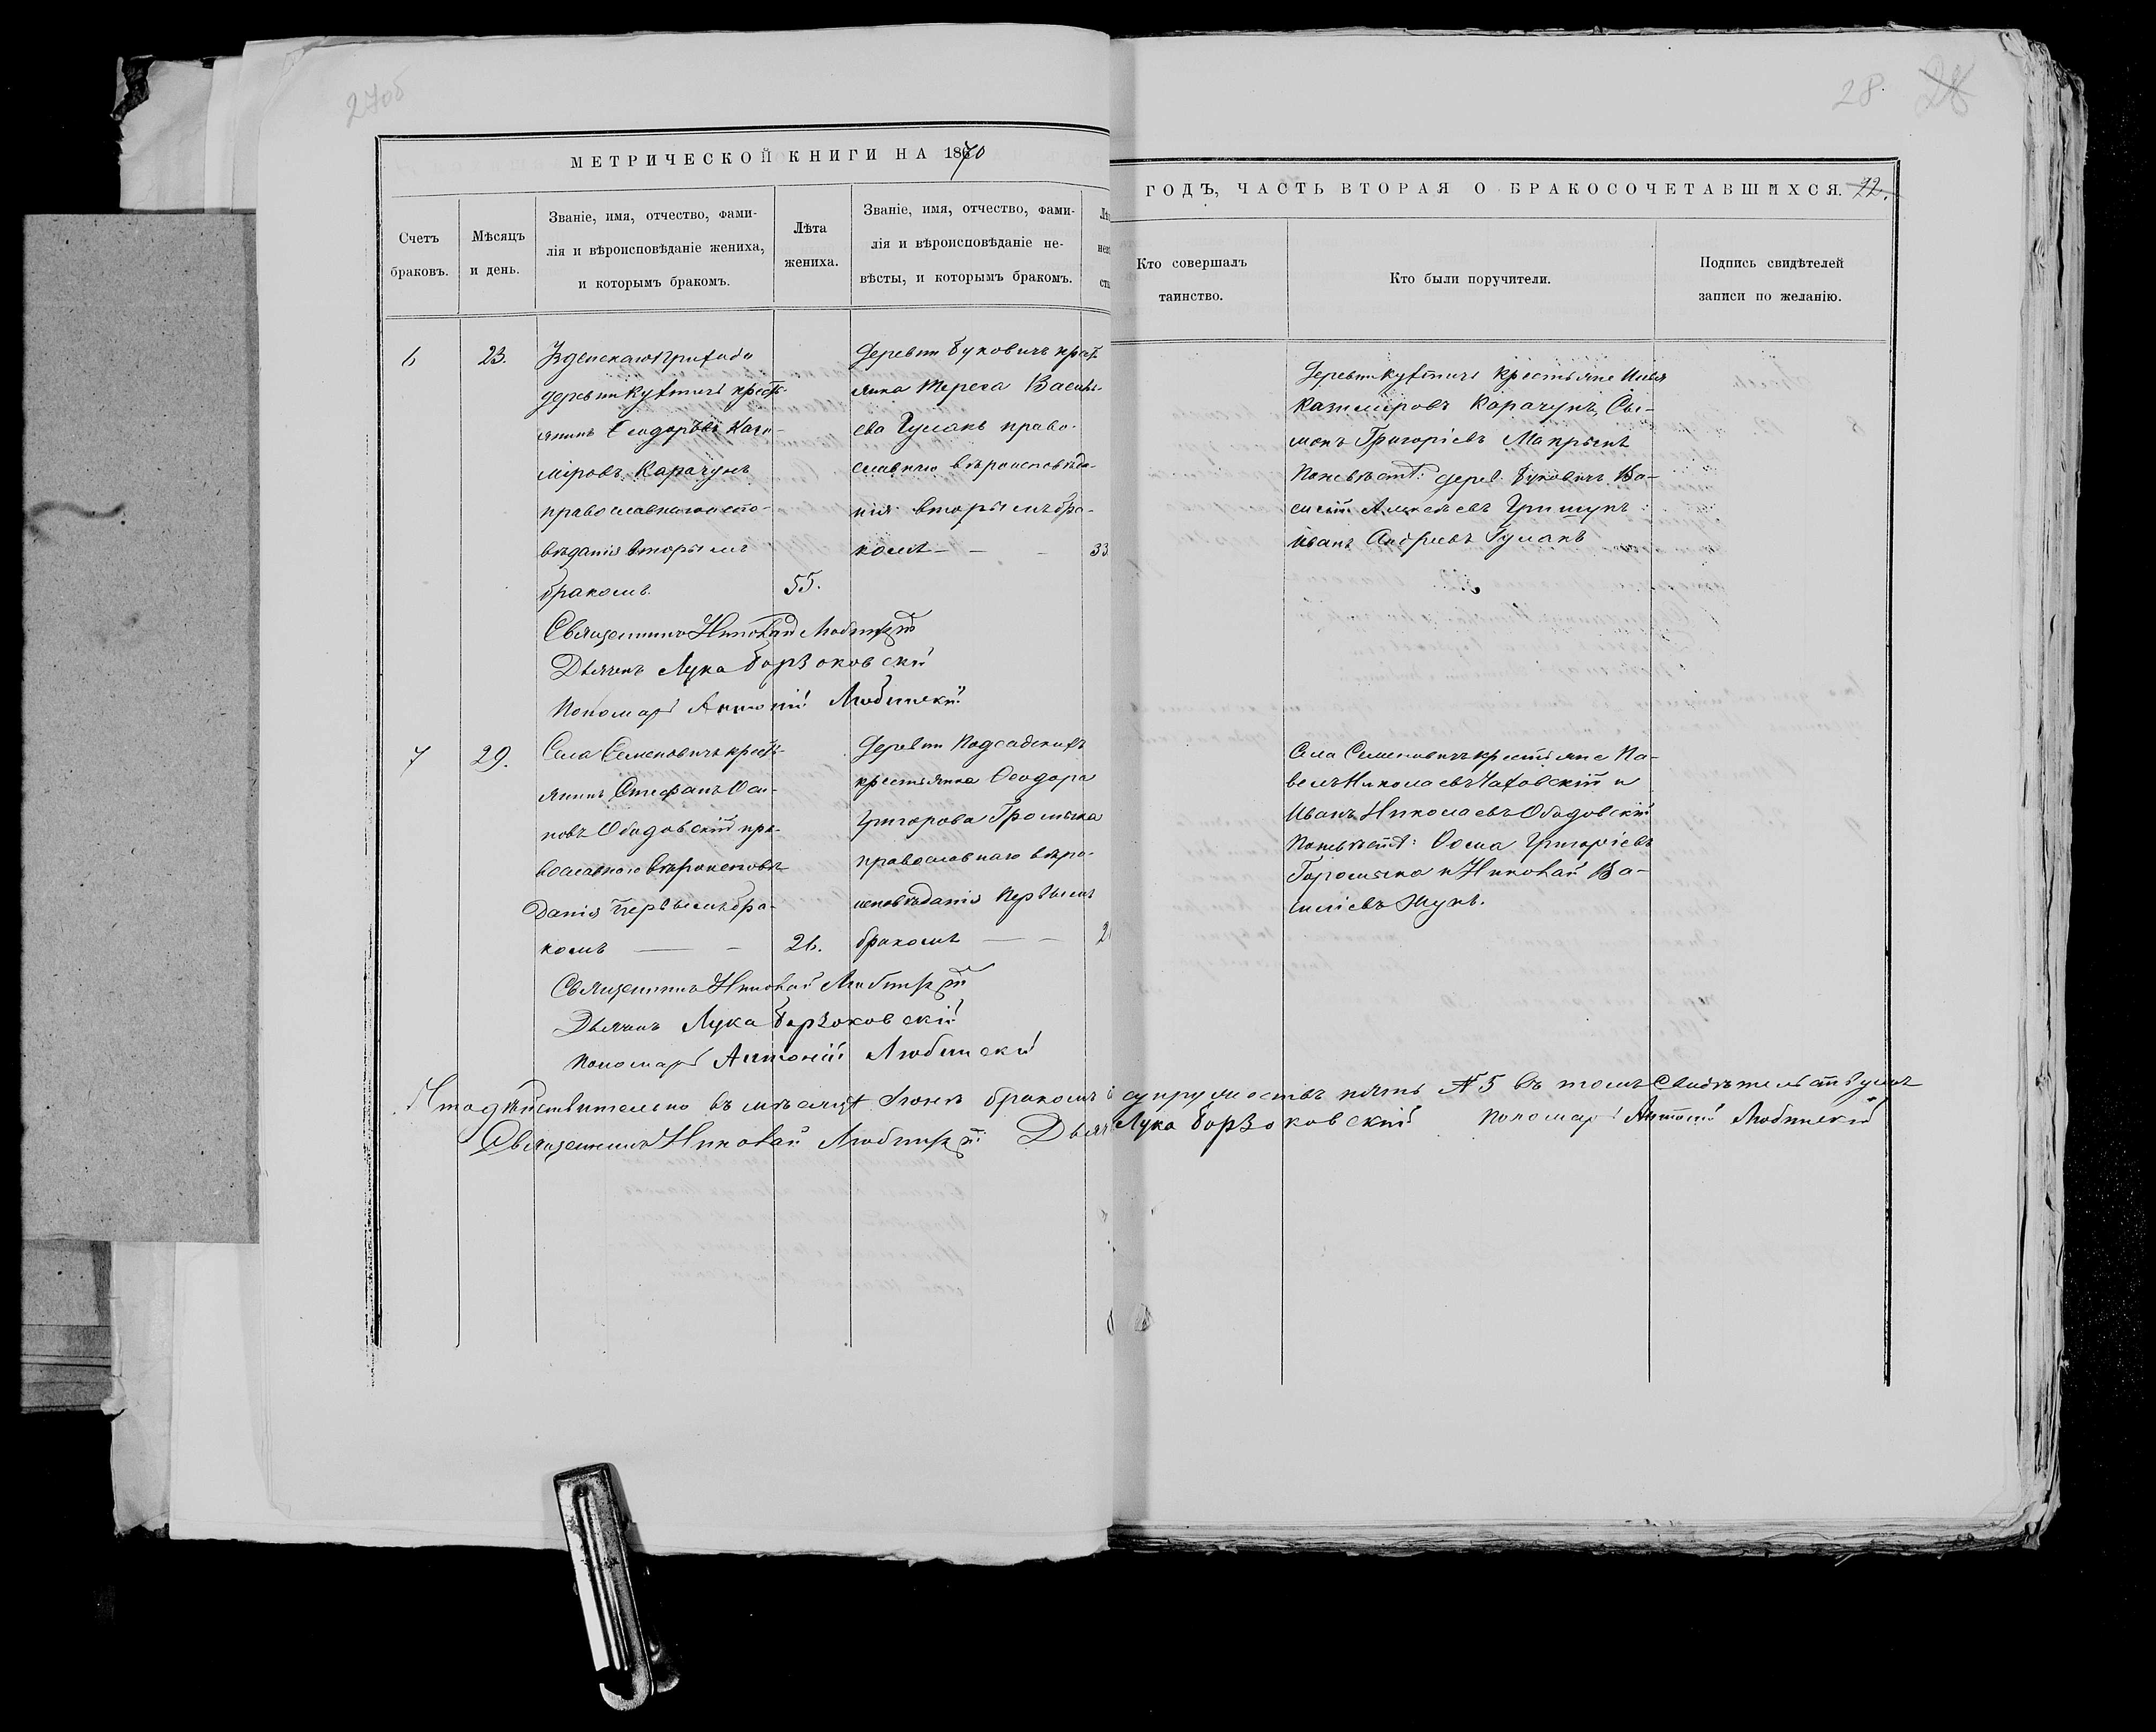 27об
28
МЕТРИЧЕСКОЙ КНИГИ НА 1870
ГОДЪ, ЧАСТЬ ВТОРАЯ О БРАКОСОЧЕТАВШИХСЯ. 72.
Счетъ
браковъ.
Мѣсяцъ
и день.
Званіе, имя, отчество, фами-
лія и вѣроисповѣданіе жениха,
и которымъ бракомъ.
Лѣта
жениха.
Званіе, имя, отчество, фами-
лія и вѣроисповѣданіе не-
вѣсты, и которымъ бракомъ.
Кто совершалъ
таинство.
Кто были поручители.
Подпись свидѣтелей
записи по желанію.
6
23.
Узденскаго Прихода
деревни Кухтичъ крестъ-
янинъ Ѳеодоръ Кази-
міровъ Карачунъ
православнаго испо-
вѣданія вторымъ
бракомъ.
55.
Деревни Буковичъ крестъ-
янка Тереса Василь-
ева Гуманъ право-
славнаго вѣроисповѣда-
нія вторымъ бра-
комъ
33
Деревни Кухтичъ крестьяне Илья
Казиміровъ Карачунъ, Сы-
монъ Григоріевъ
По невѣстѣ: дерев. Буковичъ Ва-
силій Алексѣевъ Гришукъ
Иванъ Андреевъ Гуманъ
Священникъ Николай
Дьячекъ Лука Борзоковскій
Пономарь Антоній Любинскій
7
29.
Села Семеновичъ крестъ-
янинъ Стефанъ Оси-
повъ Ободовскій пра-
вославнаго вѣроисповѣ-
данія первымъ бра-
комъ
26.
Деревни Подсадскихъ
крестьянка Ѳеодора
Григорова Громыка
православнаго вѣро-
исповѣданія первымъ
бракомъ
2
Села Семеновичъ крестьяне Па-
велъ Николаевъ Чаховскій и
Иванъ Николаевъ Ободовскій
По невѣстѣ: Ѳома Григоріевъ
и Николай Ва-
силіевъ Жукъ.
Священникъ Николай
Дьячекъ Лука Борзоковскій
Пономарь Антоній Любинскій
Что дѣйствительно въ мѣсяцѣ бракомъ супружествъ пять № 5 въ томъ свидѣтельствуемъ
Священникъ Николай Дьяч Лука Борзоковскій Пономарь Антоній Любинскій